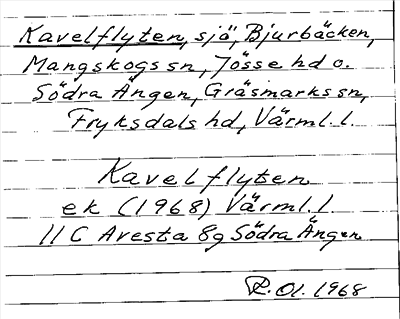 Kavelflyten, sjä, Bjurbäcken,
Mangskogs sn, Jösse hd o.
Södra Ängen, Gräsmarks sn,
Fryksdals hd, Värml. l.
Kavelflyten
ek (1968) Värml. l.
11 C Avesta 8g Södra Ängen
R. Ol. 1968